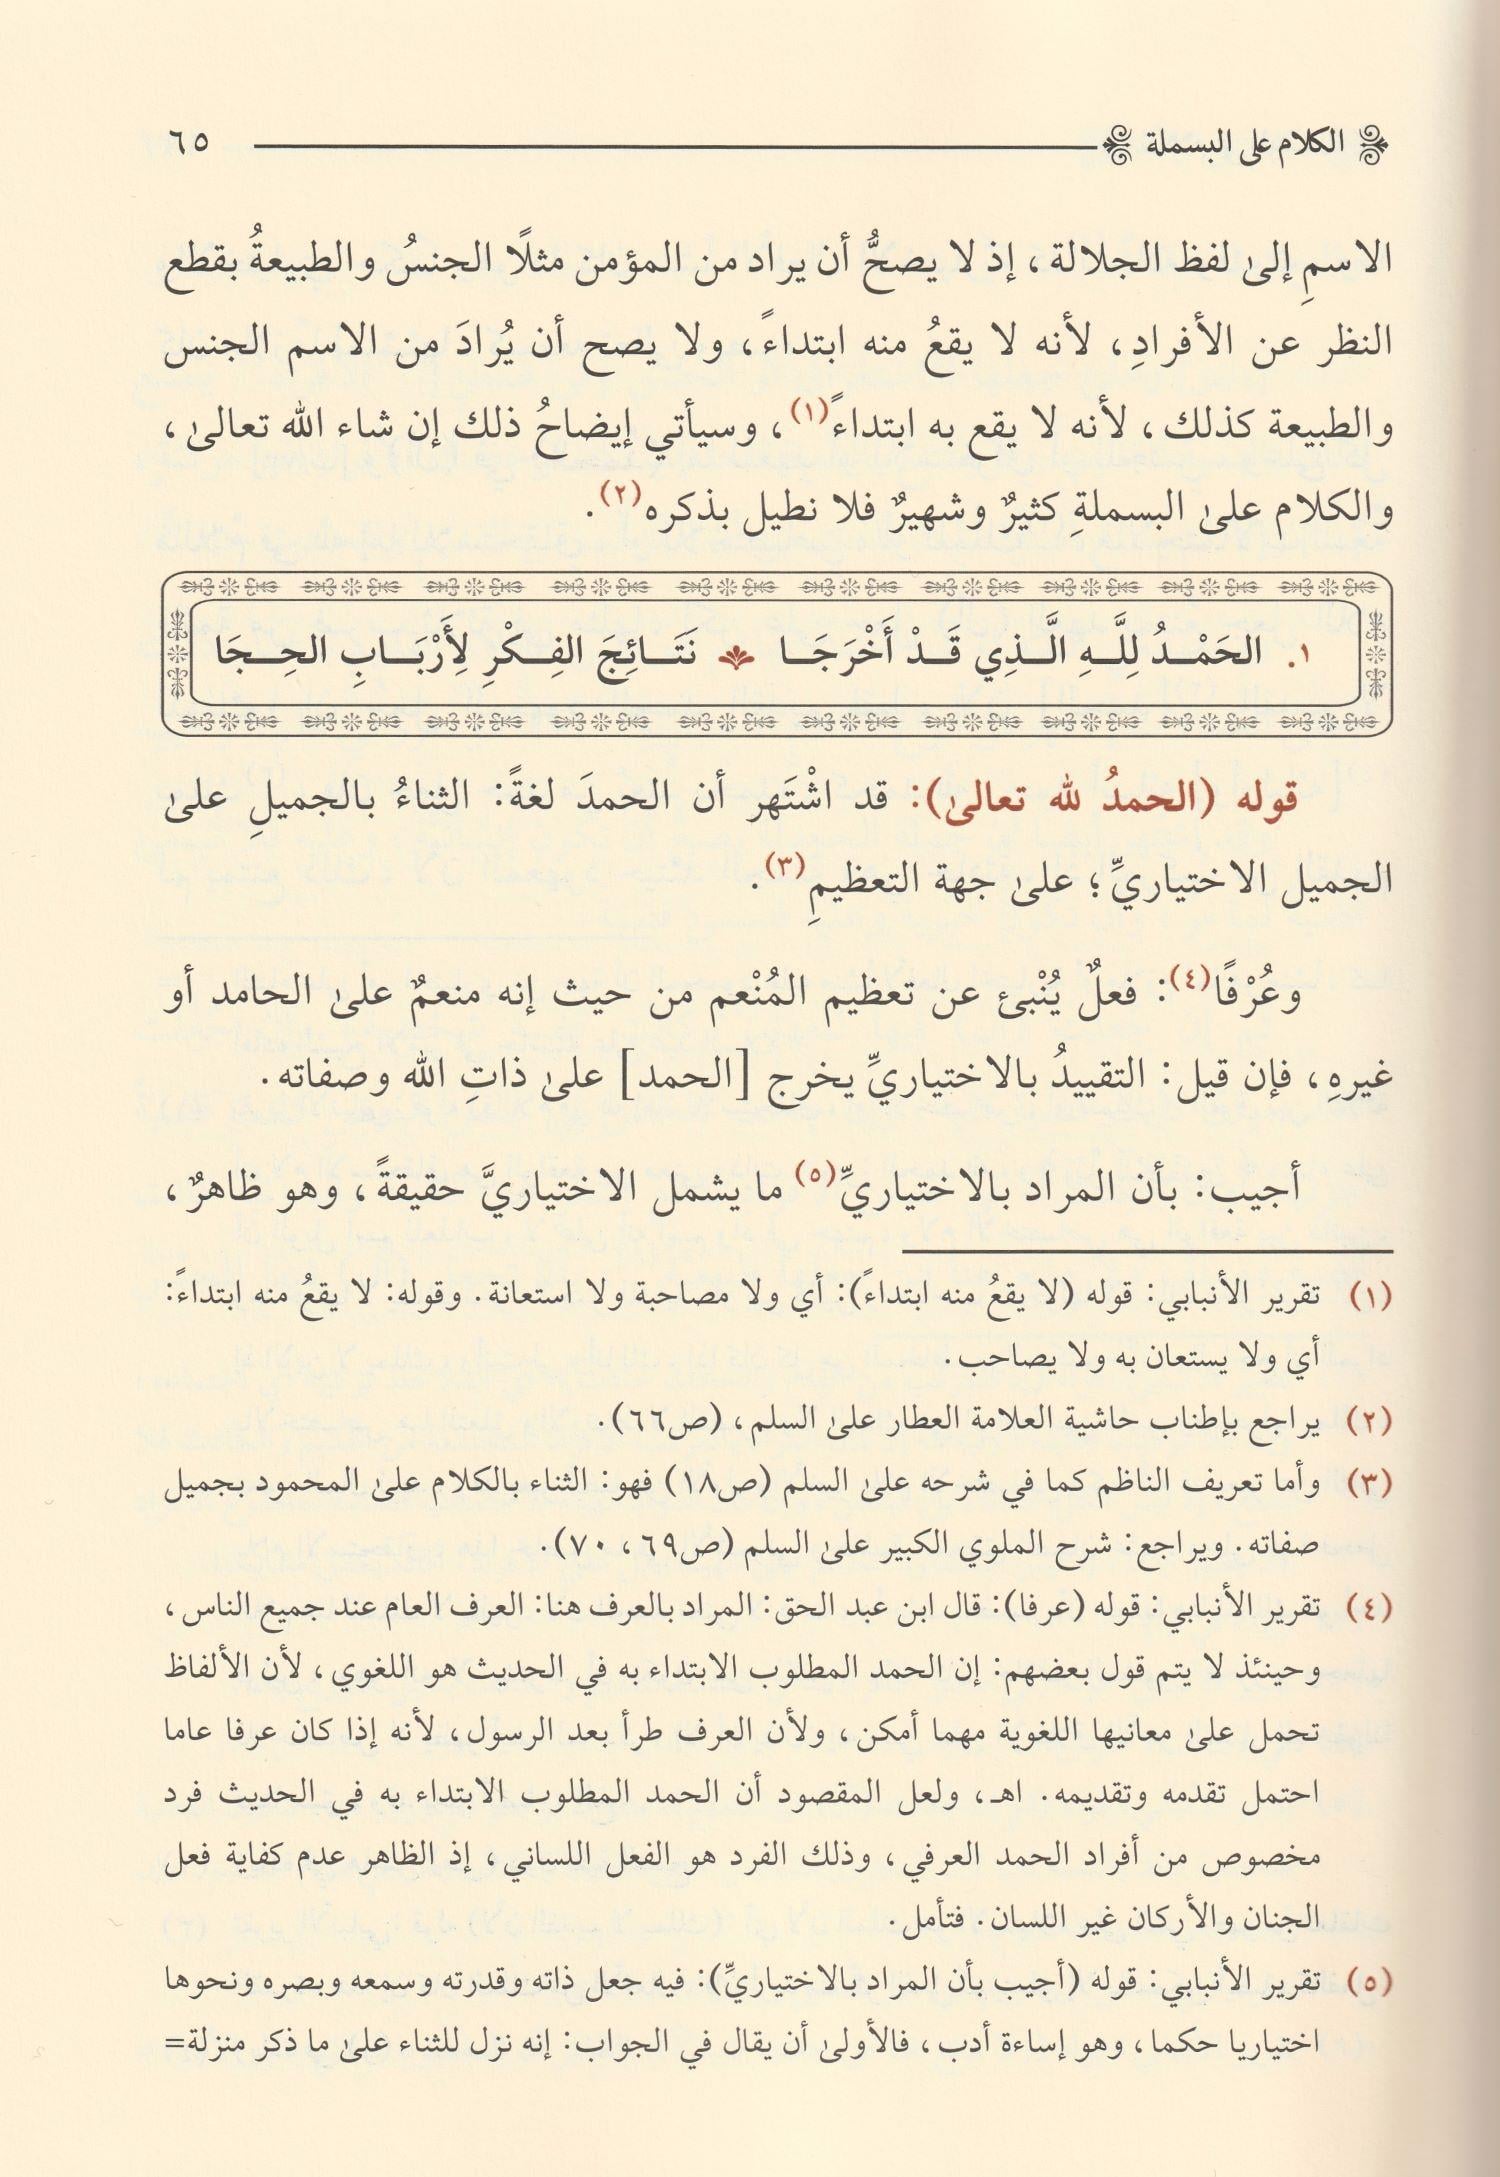 الكلام على البسملة ٦٥
الاسمِ إلىٰ لفظ الجلالة، إذ لا يصحُّ أن يراد من المؤمن مثلًا الجنسُ والطبيعةُ بقطع
النظر عن الأفرادِ، لأنه لا يقعُ منه ابتداءً، ولا يصح أن يُرادَ من الاسم الجنس
والطبيعة كذلك، لأنه لا يقع به ابتداءً(١)، وسيأتي إيضاحُ ذلك إن شاء الله تعالىٰ،
والكلام علىٰ البسملةِ كثيرٌ وشهيرٌ فلا نطيل بذكره(٢).
١. الحَمْـدُ لِلَّـهِ الَّـذِي قَـدْ أَخْرَجَـا نَتَـائِجَ الفِـكْرِ لِأَرْبَـابِ الحِـجَا
قوله (الحمدُ لله تعالىٰ): قد اشْتَهر أن الحمدَ لغةً: الثناءُ بالجميلِ علىٰ
الجميل الاختياريِّ؛ علىٰ جهة التعظيمِ(٣).
وعُرْفًا(٤): فعلٌ يُنْبئ عن تعظيم المُنْعم من حيث إنه منعمٌ علىٰ الحامد أو
غيرهِ، فإن قيل: التقييدُ بالاختياريِّ يخرج [الحمد] علىٰ ذاتِ الله وصفاته.
أجيب: بأن المراد بالاختياريِّ(٥) ما يشمل الاختياريَّ حقيقةً، وهو ظاهرٌ،
(١) تقرير الأنبابي: قوله (لا يقعُ منه ابتداءً): أي ولا مصاحبة ولا استعانة. وقوله: لا يقعُ منه ابتداءً:
أي ولا يستعان به ولا يصاحب.
(٢) يراجع بإطناب حاشية العلامة العطار علىٰ السلم، (ص٦٦).
(٣) وأما تعريف الناظم كما في شرحه علىٰ السلم (ص١٨) فهو: الثناء بالكلام علىٰ المحمود بجميل
صفاته. ويراجع: شرح الملوي الكبير علىٰ السلم (ص٦٩، ٧٠).
(٤) تقرير الأنبابي: قوله (عرفا): قال ابن عبد الحق: المراد بالعرف هنا: العرف العام عند جميع الناس،
وحينئذ لا يتم قول بعضهم: إن الحمد المطلوب الابتداء به في الحديث هو اللغوي، لأن الألفاظ
تحمل علىٰ معانيها اللغوية مهما أمكن، ولأن العرف طرأ بعد الرسول، لأنه إذا كان عرفا عاما
احتمل تقدمه وتقديمه. اهـ، ولعل المقصود أن الحمد المطلوب الابتداء به في الحديث فرد
مخصوص من أفراد الحمد العرفي، وذلك الفرد هو الفعل اللساني، إذ الظاهر عدم كفاية فعل
الجنان والأركان غير اللسان. فتأمل.
(٥) تقرير الأنبابي: قوله (أجيب بأن المراد بالاختياريِّ): فيه جعل ذاته وقدرته وسمعه وبصره ونحوها
اختياريا حكما، وهو إساءة أدب، فالأولىٰ أن يقال في الجواب: إنه نزل للثناء علىٰ ما ذكر منزلة=